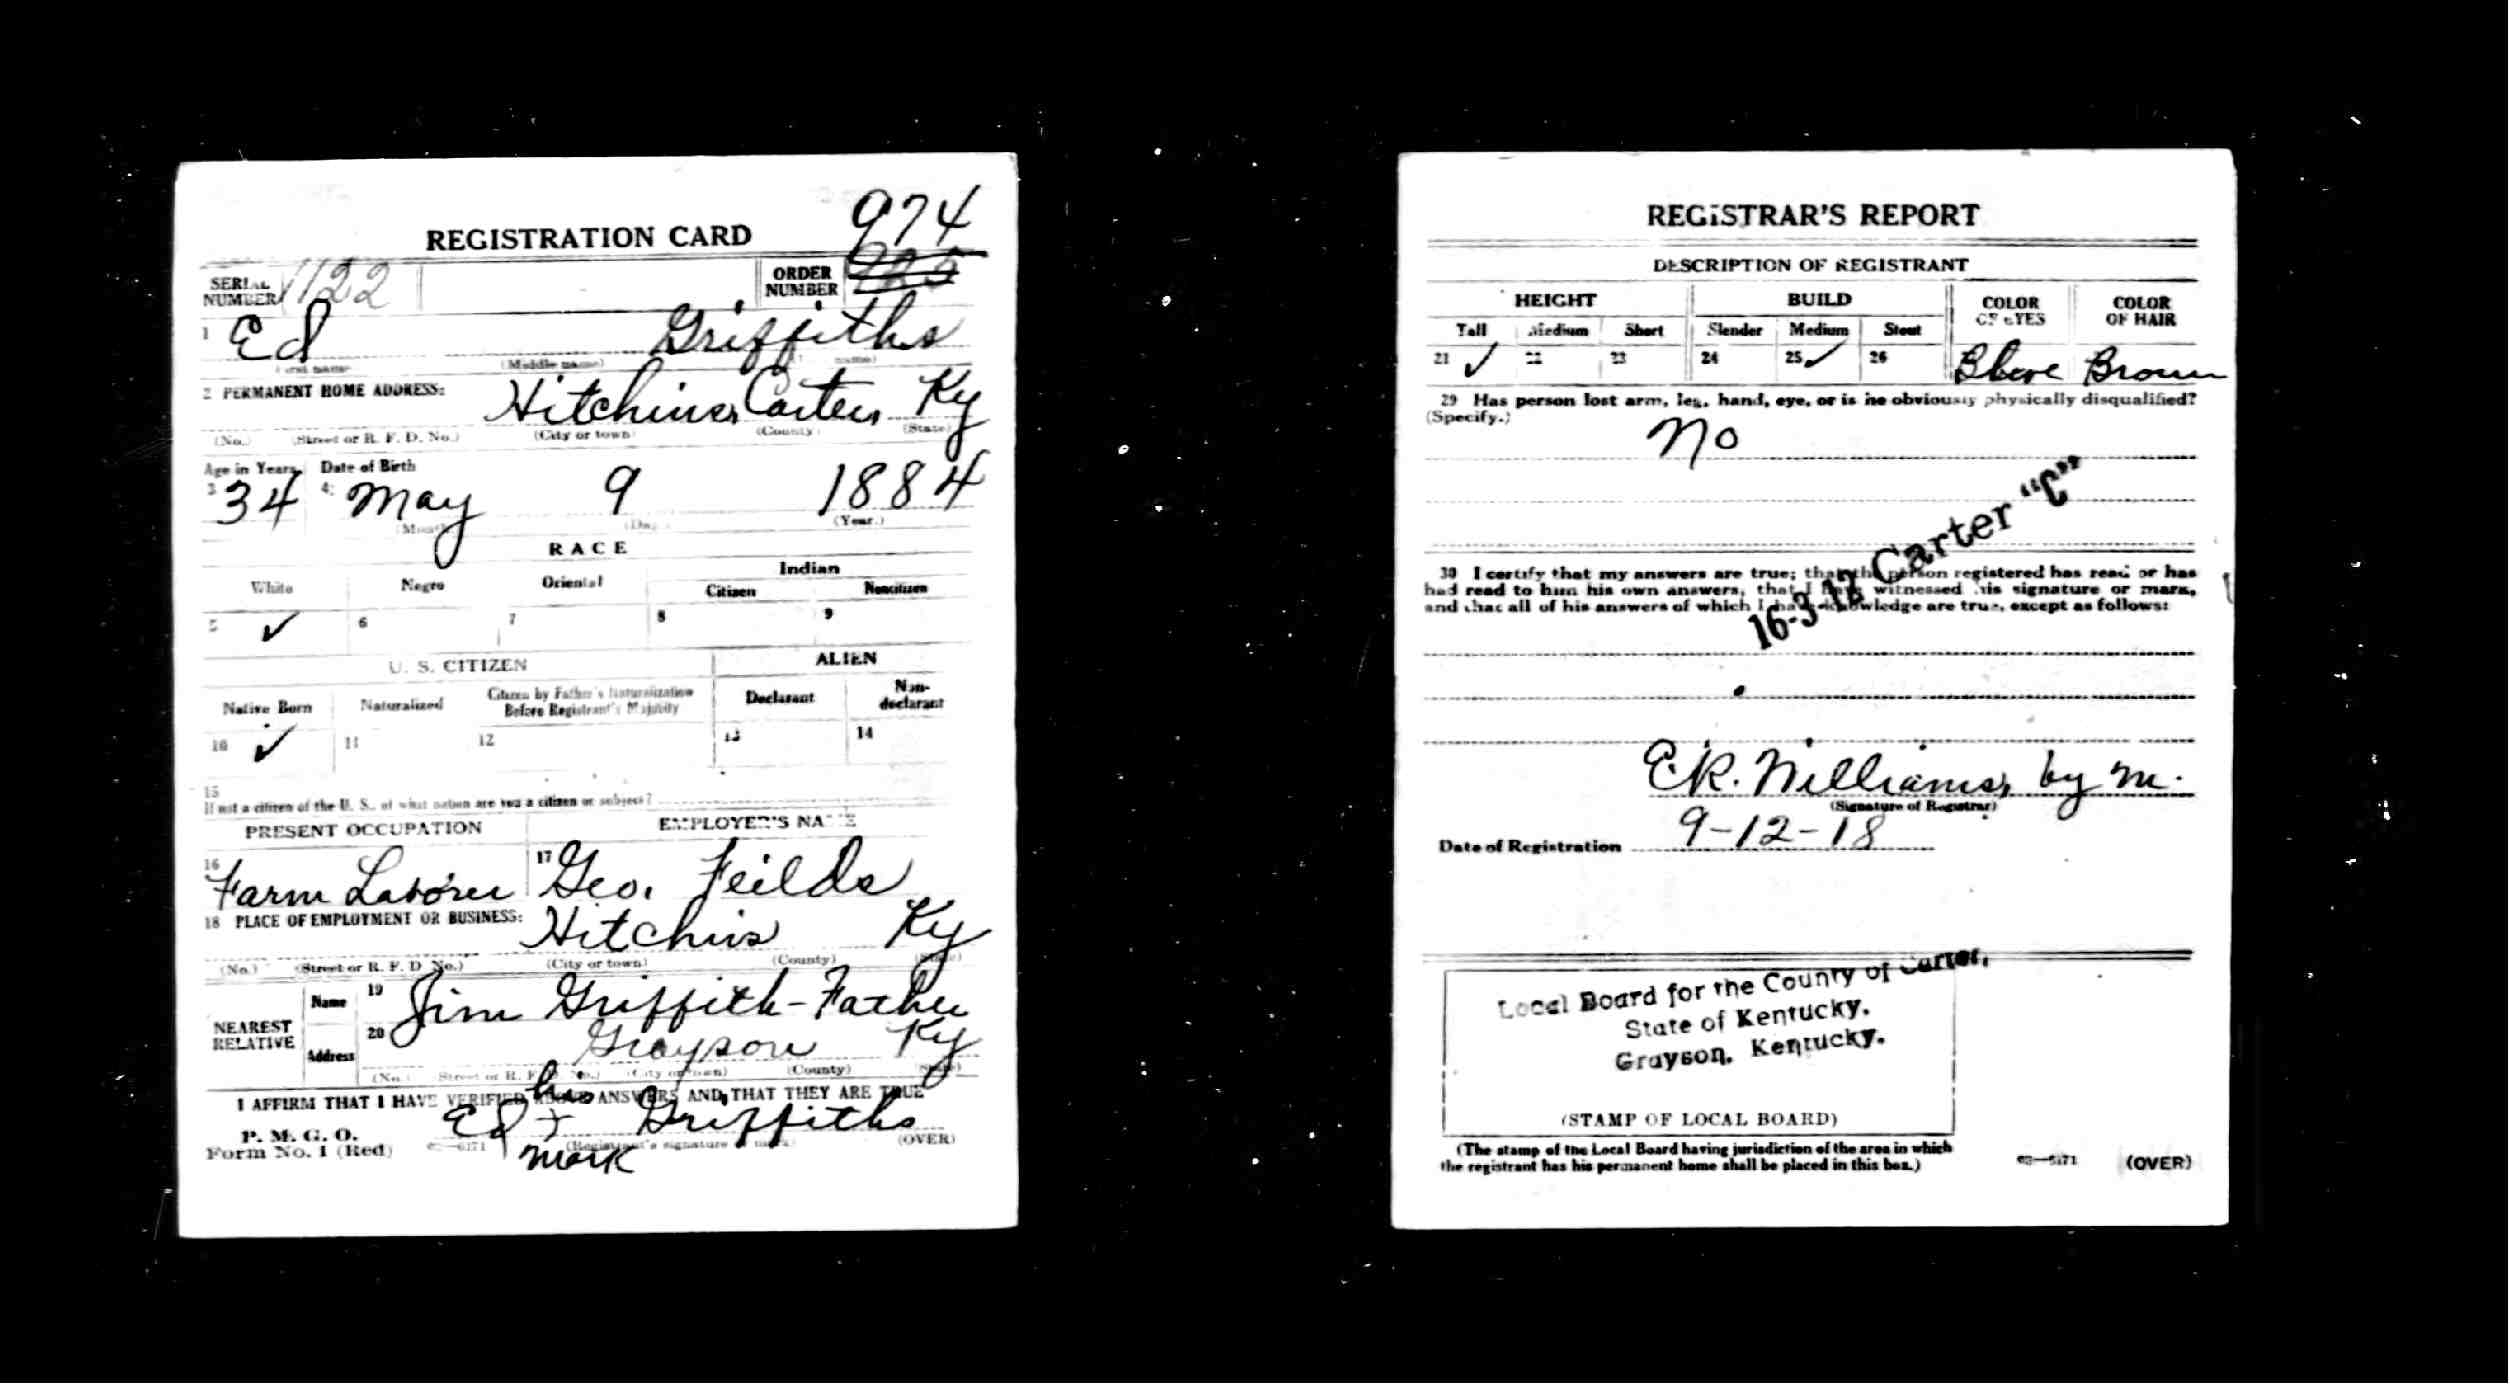 REGISTRATION CARD
974
SERIAL NUMBER 1122
ORDER NUMBER
1 Ed Griffiths
(First name) (Middle name) name)
2 PERMANENT HOME ADDRESS: Hitchins, Carter, Ky
(No.) (Street or R. F. D. No.) (City or town) (County) (State)
Age in Years Date of Birth
3 34 4 May 9 1884
(Month) (Day.) (Year.)
RACE
White Negro Oriental Indian
Citizen Noncitizen
5 ✓ 6 7 8 9
U. S. CITIZEN ALIEN
Native Born Naturalized Citizen by Father's Naturalization Before Registrant's Majority Declarant Non-declarant
10 ✓ 11 12 13 14
15
If not a citizen of the U. S., of what nation are you a citizen or subject?
PRESENT OCCUPATION EMPLOYER'S NAME
16 Farm Laborer 17 Geo. Feilds
18 PLACE OF EMPLOYMENT OR BUSINESS:
Hitchins Ky
(No.) (Street or R. F. D. No.) (City or town) (County) (State)
NEAREST RELATIVE
Name 19 Jim Griffith - Father
Address 20 Grayson Ky
(No.) (Street or R. F. D. No.) (City or town) (County) (State)
I AFFIRM THAT I HAVE VERIFIED ABOVE ANSWERS AND THAT THEY ARE TRUE
his
P. M. G. O. Ed + Griffiths
Form No. 1 (Red) (Registrant's signature mark) (OVER)
mark
REGISTRAR'S REPORT
DESCRIPTION OF REGISTRANT
HEIGHT BUILD COLOR OF EYES COLOR OF HAIR
Tall Medium Short Slender Medium Stout
21 ✓ 22 23 24 25 ✓ 26 Blue Brown
29 Has person lost arm, leg, hand, eye, or is he obviously physically disqualified?
(Specify.)
No
16-3-12 Carter "C"
30 I certify that my answers are true; that the person registered has read or has
had read to him his own answers, that I have witnessed his signature or mark,
and that all of his answers of which I have knowledge are true, except as follows:
E.R. Williams, by m.
(Signature of Registrar)
Date of Registration 9-12-18
Local Board for the County of Carter,
State of Kentucky,
Grayson, Kentucky.
(STAMP OF LOCAL BOARD)
(The stamp of the Local Board having jurisdiction of the area in which
the registrant has his permanent home shall be placed in this box.)
(OVER)